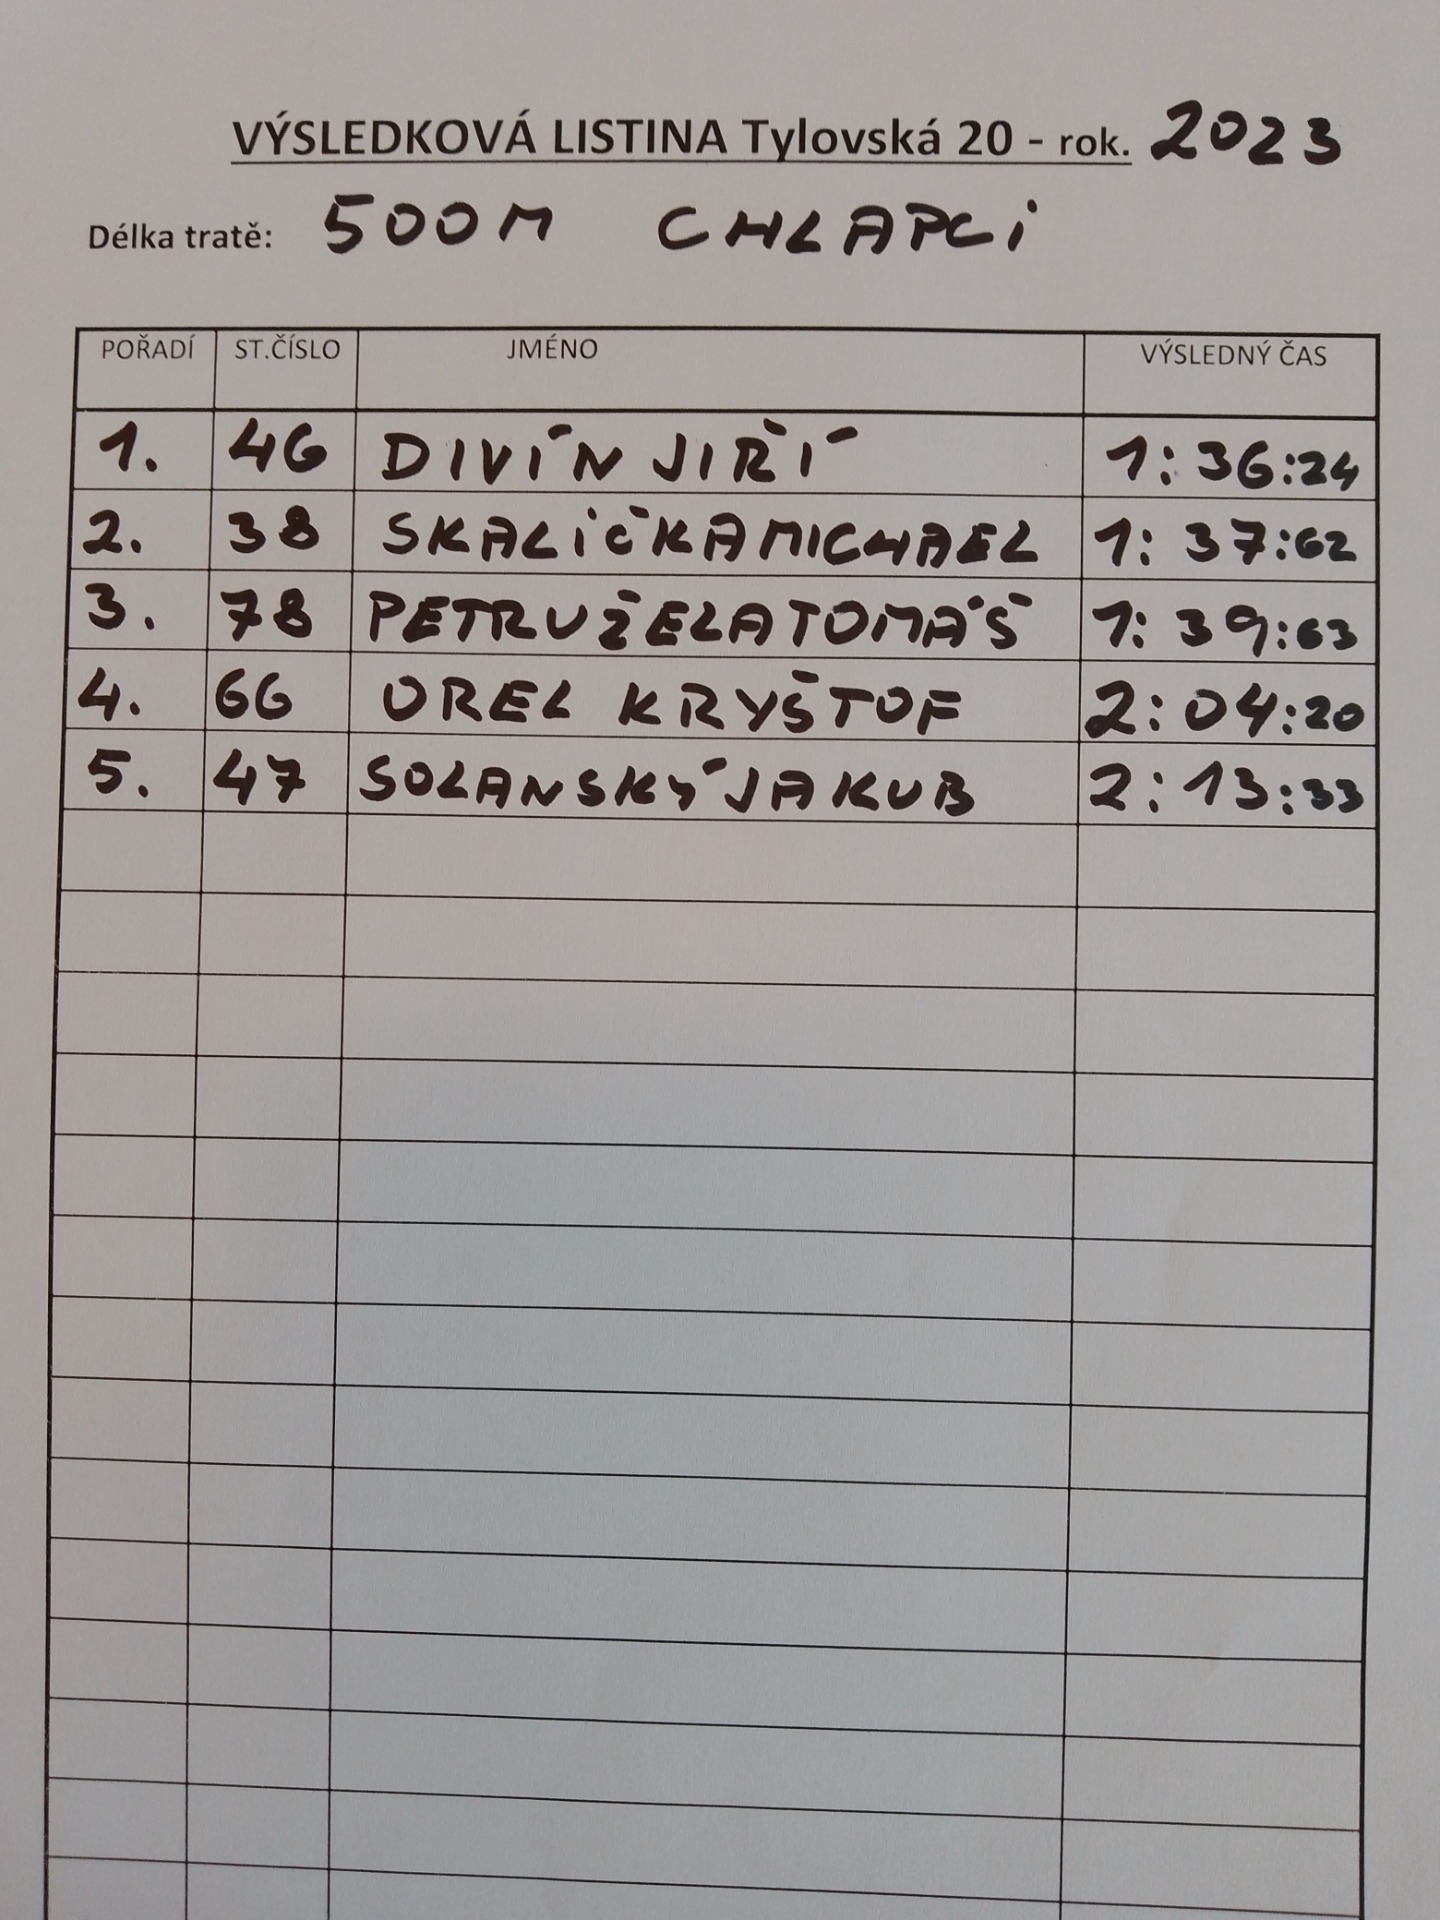 VÝSLEDKOVÁ LISTINA Tylovská 20 - rok. 2023
Délka tratě: 500M CHLAPCI
POŘADÍ ST.ČÍSLO JMÉNO VÝSLEDNÝ ČAS
1. 46 DIVÍN JIŘÍ 1:36:24
2. 38 SKALIČKA MICHAEL 1:37:62
3. 78 PETRUŽELA TOMÁŠ 1:39:63
4. 66 OREL KRYŠTOF 2:04:20
5. 47 SOLANSKÝ JAKUB 2:13:33